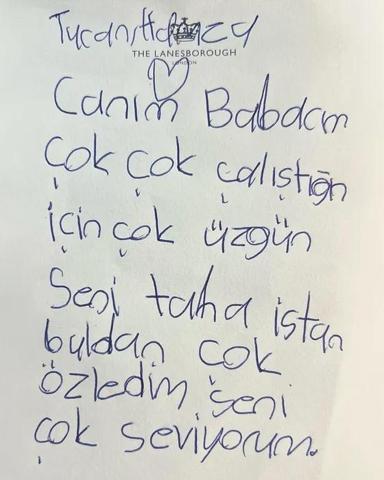 THE LANESBOROUGH
LONDON
Canım Babacım
çok çok çalıştığın
için çok üzgün
Seni taha istan
buldan çok
özledim şeni
çok seviyorum.